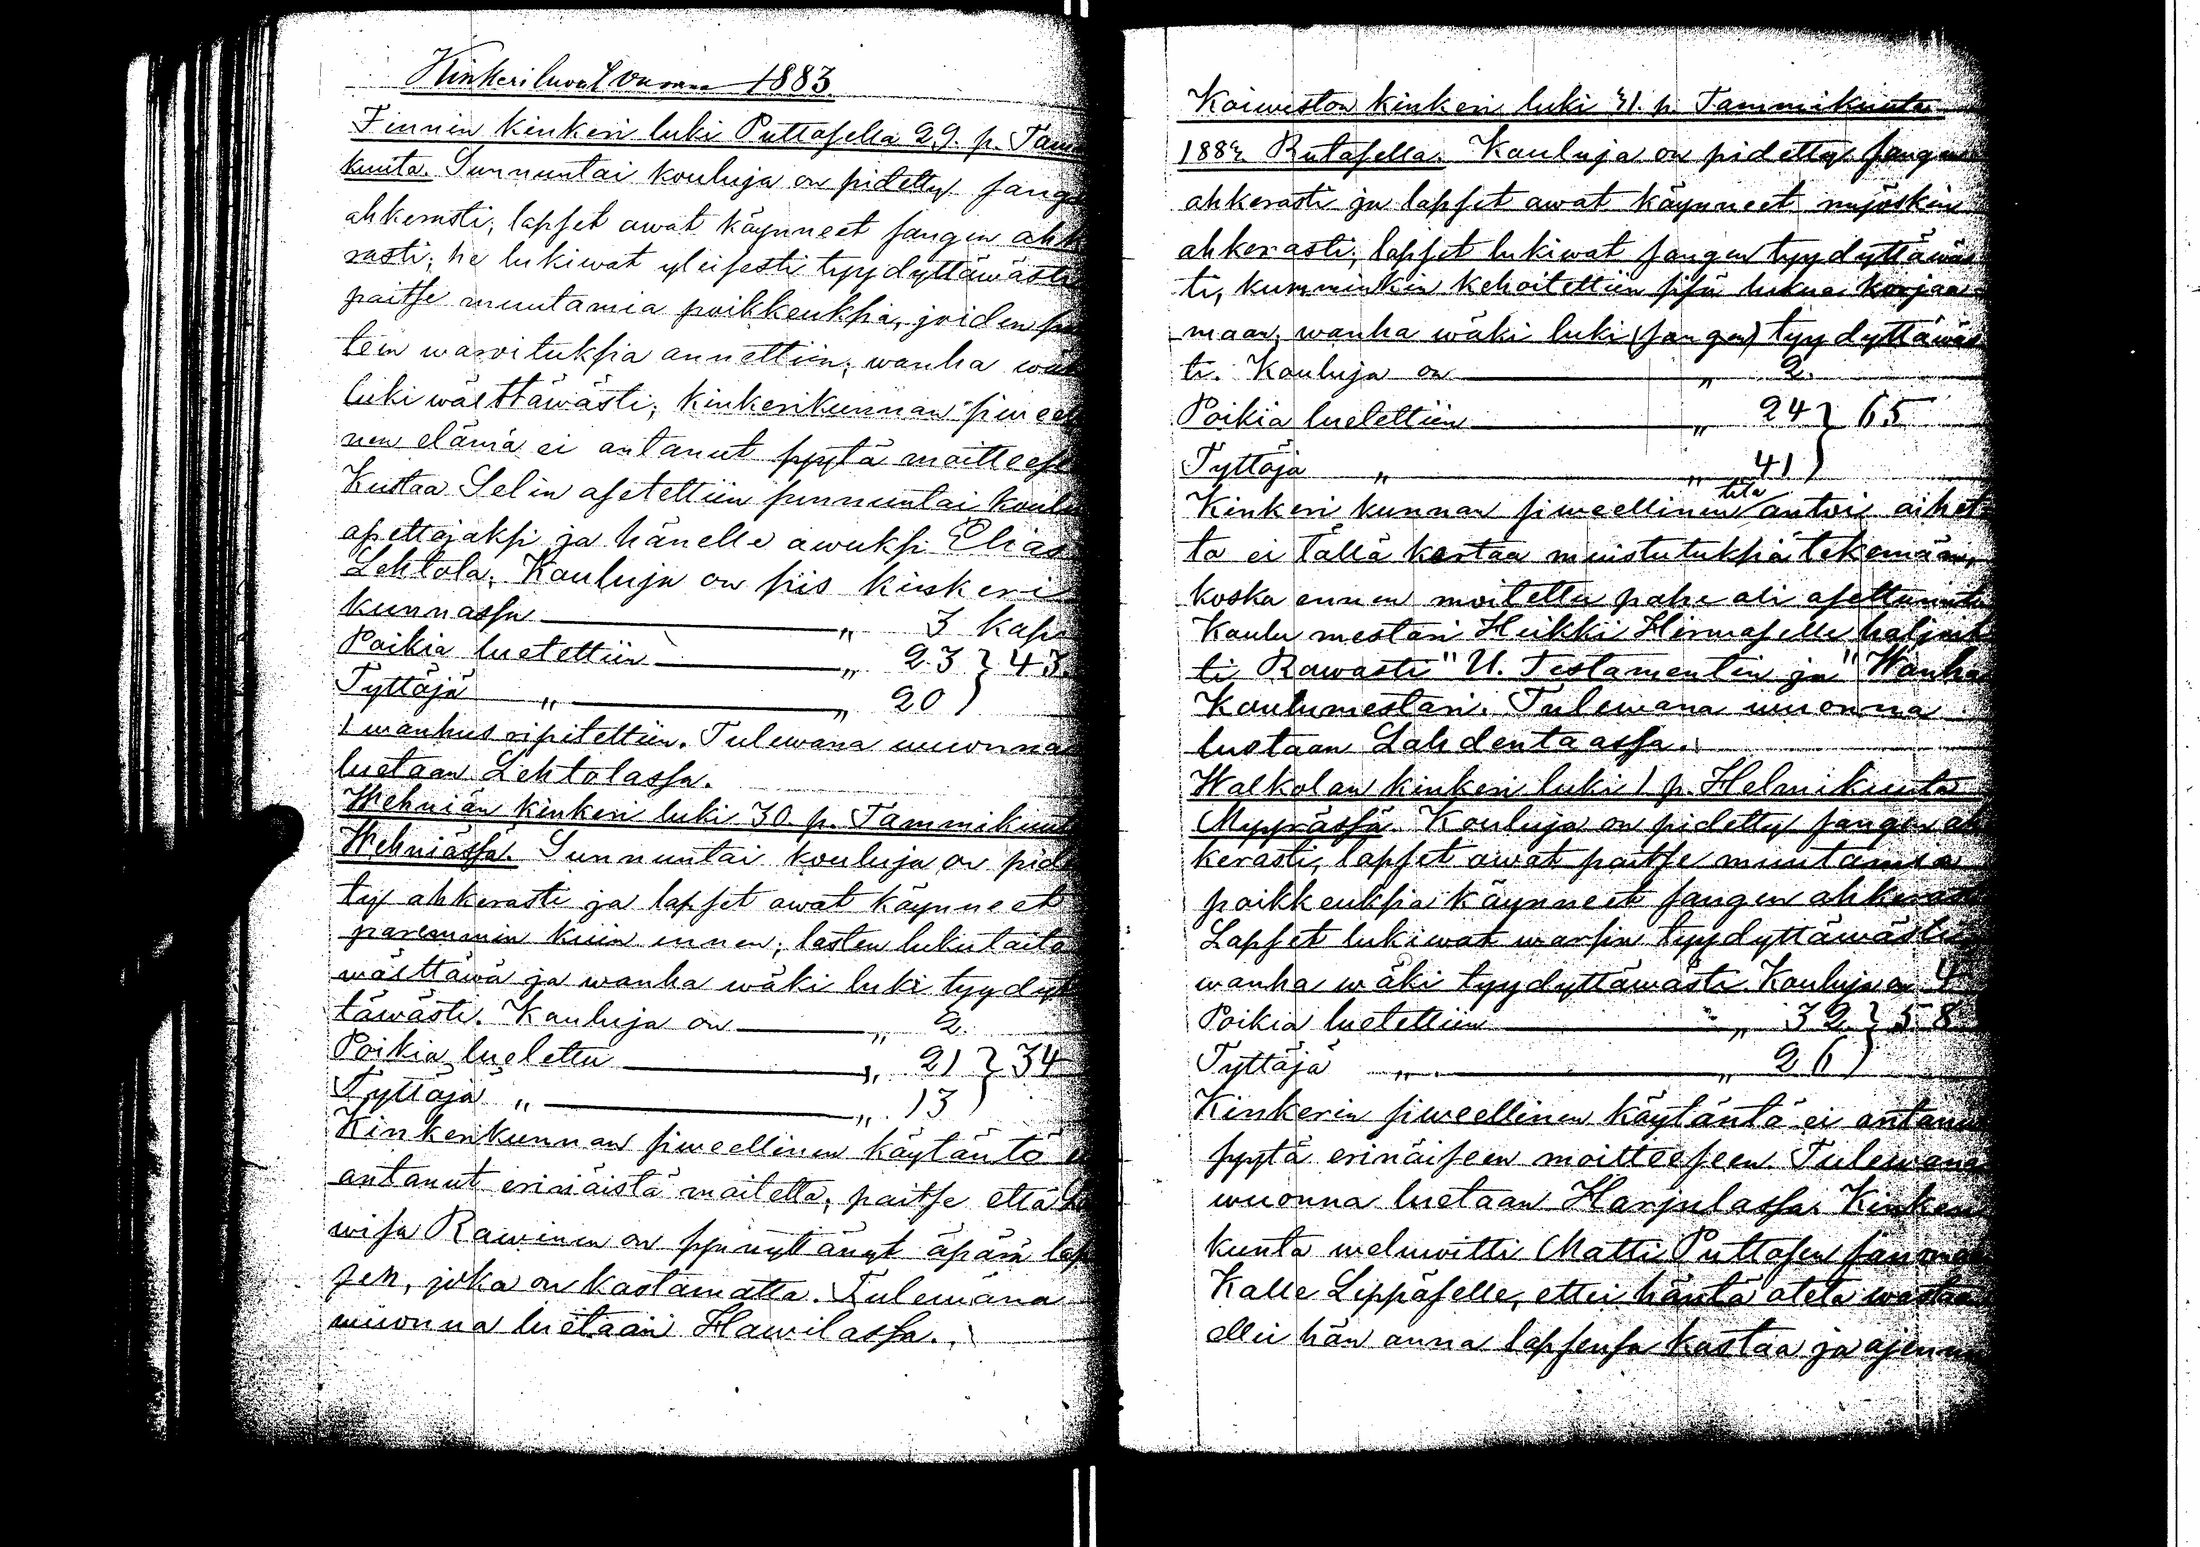 Kinkeriluvut vuonna 1883.
Finnin kinkeri luki Puttasella 29. p. Tam
kuuta. Sunnuntai kouluja on pidetty sang
ahkerasti, lapset awat käynneet sangen ahk
rasti; he lukiwat yleisesti tyydyttäwästi
paitse muutamia poikkeuksia, joiden
tein waroituksia annettiin; wanha wäk
luki wälttäwästi; kinkerikunnan siweel
nen elämä ei antanut syytä moitteese
Kustaa Selin asetettiin sunnuntai koulu
opettajaksi ja hänelle awuksi Elias
Lehtola. Kouluja on siis kinkeri
kunnassa — „ 3 kap.
Poikia luetettiin — „ 23 } 43.
Tyttöjä „ — „ 20 }
1 wanhus ripitettiin. Tulewana wuonna
luetaan Lehtolassa.
Wehniän kinkeri luki 30. p. Tammikuut
Wehniässä. Sunnuntai kouluja on pide
ty ahkerasti ja lapset awat käynneet
paremmin kuin ennen; lasten lukutaito
wälttäwä ja wanha wäki luki tyydyt
täwästi. Kouluja on — „ 2.
Poikia luetettu — „ 21 } 34
Tyttöjä „ — „ 13 }
Kinkerikunnan siweellinen käytäntö e
antanut erinäistä moitetta, paitse että Lo
wisa Rawinen on synnyttänyt äpärä lap
sen, joka on kastamatta. Tulewana
wuonna luetaan Hawilassa.
Koiwiston kinkeri luki 31. p. Tammikuuta
1883 Rutasella. Kouluja on pidetty sangen
ahkerasti ja lapset awat käynneet myöskin
ahkerasti; lapset lukiwat sangen tyydyttäwäs
ti, kumminkin kehoitettiin sisä lukua korjaa-
maan, wanha wäki luki (sangen) tyydyttäwäs
ti. Kouluja on — „ 2.
Poikia luetettiin — „ 24 } 65
Tyttöjä „ — „ 41 }
Kinkeri kunnan siweellinen tila antoi aihet-
ta ei tällä kertaa muistutuksia tekemään,
koska ennen moitettu pahe oli asettunut
Koulu mestari Heikki Hirmaselle lahjoit
ti Rawasti "U. Testamentin ja" Wanha
Koulumestari. Tulewana wuonna
luetaan Lahdentaassa.
Walkolan kinkeri luki 1 p. Helmikuuta
Myyrässä. Kouluja on pidetty sangen ah
kerasti, lapset awat paitse muutamia
poikkeuksia käynneet sangen ahkerasti
Lapset lukiwat warsin tyydyttäwästi
wanha wäki tyydyttäwästi. Kouluja on 4
Poikia luetettiin — „ 32 } 58
Tyttöjä „ — „ 26 }
Kinkerin siweellinen käytäntö ei antanu
syytä erinäiseen moitteeseen. Tulewana
wuonna luetaan Harjulassa. Kinkeri
kunta welwoitti Matti Puttosen sanoma
Kalle Lippäselle, ettei häntä oteta wastaan
ellei hän anna lapsensa kastaa ja